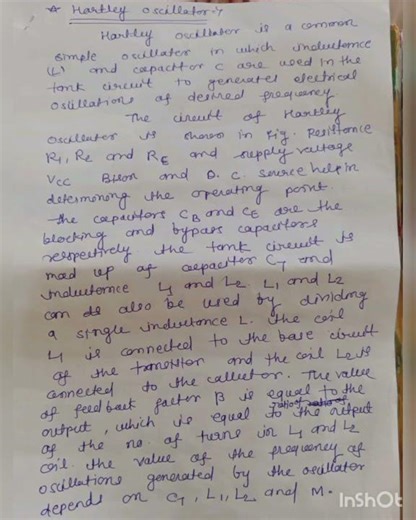 * Hartley oscillator :-
Hartley oscillator is a common
simple oscillator in which inductance
(L) and capacitor C are used in the
tank circuit to generates electrical
oscillations of desired frequency.
The circuit of Hartley
oscillator is shown in fig. Resistance
R1, R2 and RE and supply voltage
Vcc from and D.C. source help in
determining the operating point.
The capacitors CB and CE are the
blocking and bypass capacitors
respectively the tank circuit is
mad up of capacitor C1 and
inductance L1 and L2. L1 and L2
can also be used by dividing
a single inductance L. The coil
L1 is connected to the base circuit
of the transistor and the coil L2 is
connected to the collector. The value
of feedback factor B is equal to the
output, which is equal to the ratio of output
of the no. of turns in L1 and L2
coil. The value of the frequency of
oscillations generated by the oscillator
depends on C1, L1, L2 and M.
InShot